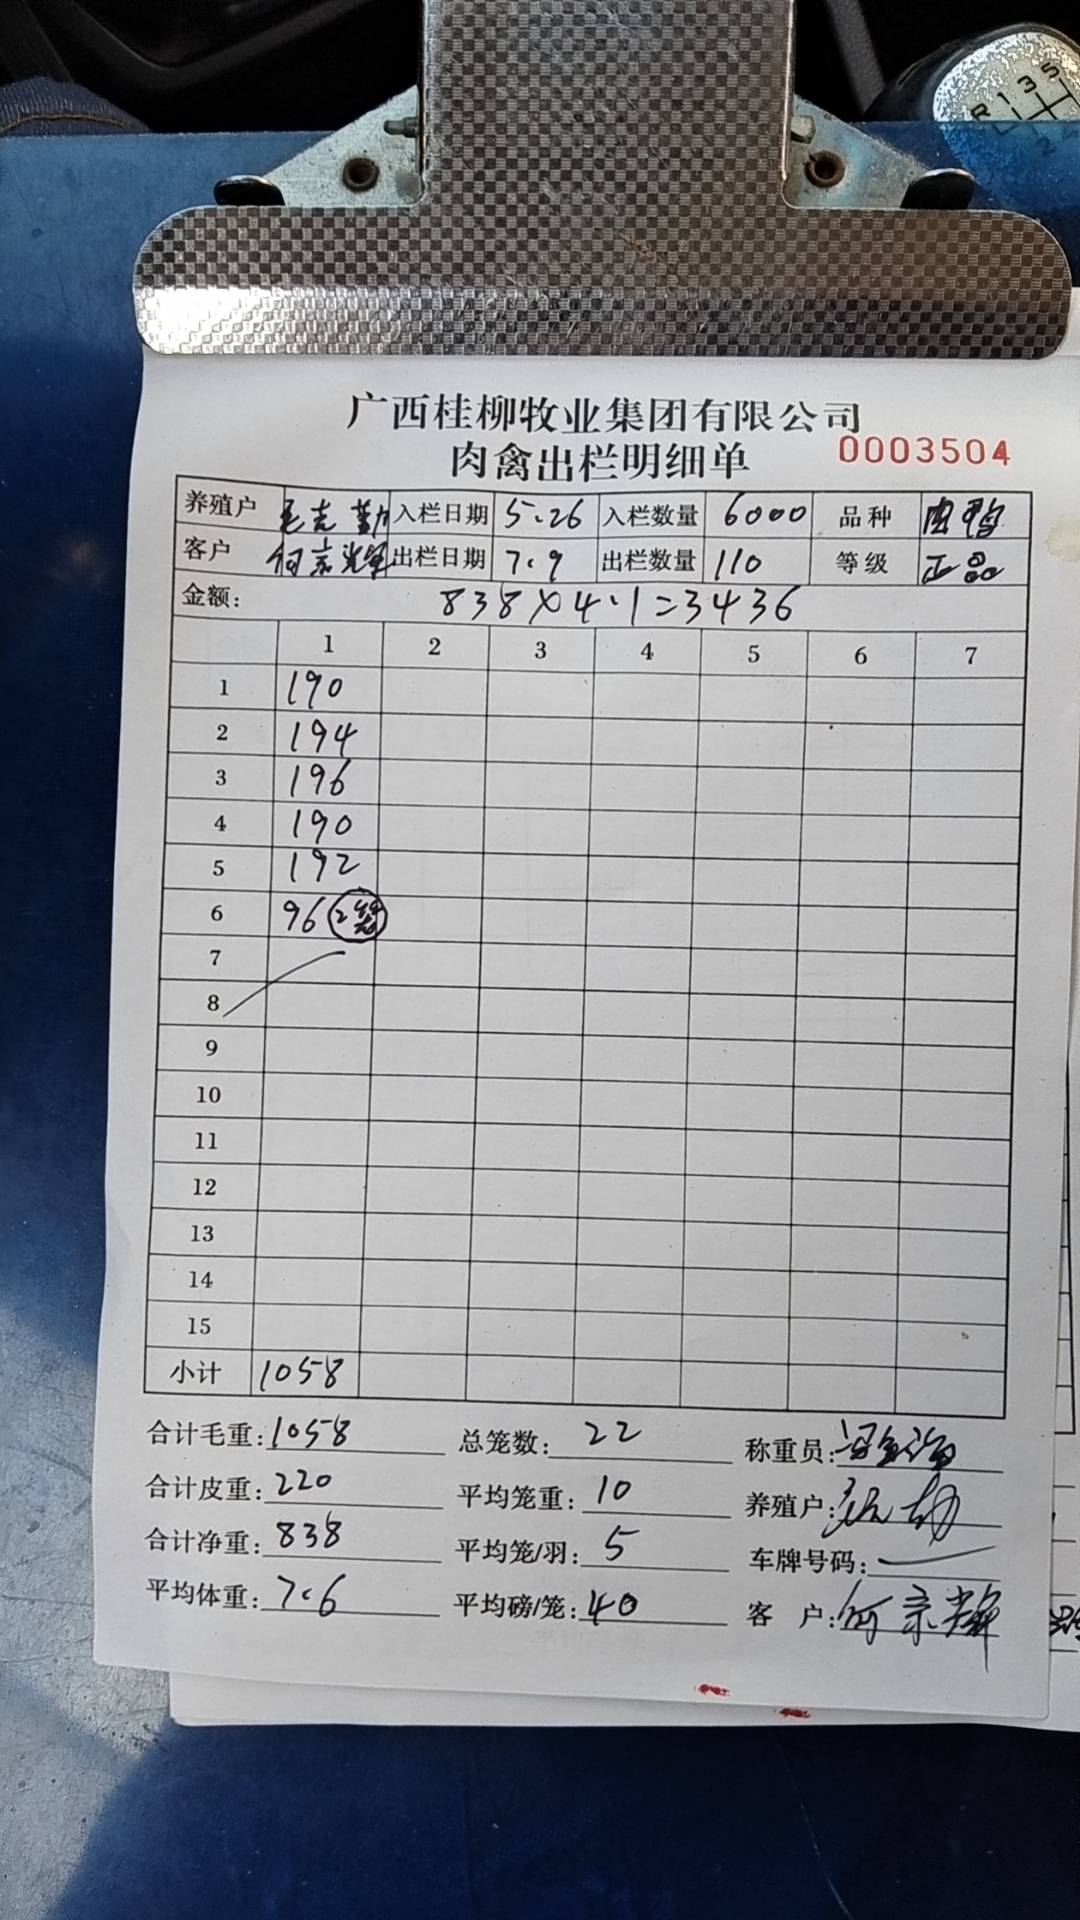 R 1 3 5
2
广西桂柳牧业集团有限公司
肉禽出栏明细单 0003504
养殖户 入栏日期 5.26 入栏数量 6000 品种 肉鸭
客户 何京辉 出栏日期 7.9 出栏数量 110 等级 正品
金额: 838×4.1=3436
1 2 3 4 5 6 7
1 190
2 194
3 196
4 190
5 192
6 96 2笼
7
8
9
10
11
12
13
14
15
小计 1058
合计毛重: 1058 总笼数: 22 称重员:
合计皮重: 220 平均笼重: 10 养殖户:
合计净重: 838 平均笼/羽: 5 车牌号码:
平均体重: 7.6 平均磅/笼: 40 客 户: 何京辉